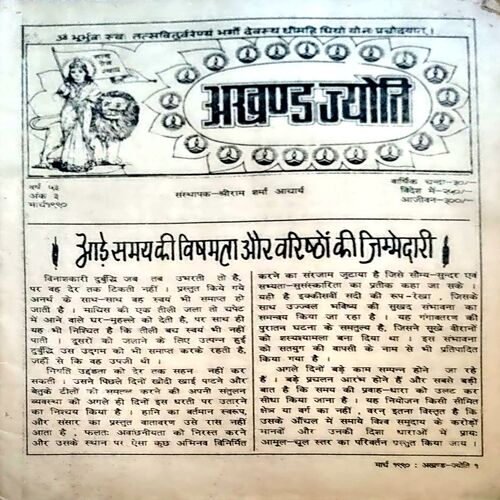 ॐ भूर्भुवः स्वः तत्सवितुर्वरेण्यं भर्गो देवस्य धीमहि धियो योनः प्रचोदयात् ।
अखण्ड ज्योति
वर्ष ५३
अंक ३
मार्च १९९०
संस्थापक-श्रीराम शर्मा आचार्य
वार्षिक चन्दा-३०/-
विदेश में-
आजीवन-३००/-
आड़े समय की विषमता और वरिष्ठों की जिम्मेदारी
विनाशकारी दुर्बुद्धि जब तब उभरती तो है,
पर वह देर तक टिकती नहीं । प्रस्तुत किये गये
अनर्थ के साथ-साथ वह स्वयं भी समाप्त हो
जाती है । माचिस की एक तीली जला तो छप्पर
में आने वाले घर-मुहल्ले को देती है, पर साथ ही
यह भी निश्चित है कि तीली बच स्वयं भी नहीं
पाती । दूसरों को जलाने के लिए उत्पन्न हुई
दुर्बुद्धि उस उद्गम को भी समाप्त करके रहती है,
जहाँ से कि वह उपजी थी ।
नियति उद्दंडता को देर तक सहन नहीं कर
सकती । उसने पिछले दिनों खोदी खाई पाटने और
बेतुके टीलों को समतल करने की अपनी संतुलन
व्यवस्था को अगले ही दिनों इस धरती पर उतारने
का निश्चय किया है । हानि का वर्तमान स्वरूप,
और संसार का प्रस्तुत वातावरण उसे रास नहीं
आता है , फलतः अवांछनीयता को निरस्त करने
और उसके स्थान पर ऐसा कुछ अभिनव विनिर्मित
करने का सरंजाम जुटाया है जिसे सौम्य-सुन्दर एवं
सभ्यता-सुसंस्कारिता का प्रतीक कहा जा सके ।
यही है इक्कीसवीं सदी की रूप-रेखा जिसके
साथ उज्ज्वल भविष्य की सुखद संभावना का
समन्वय किया जा रहा है । यह गंगावतरण की
पुरातन घटना के समतुल्य है, जिसने सूखे वीरानों
को शस्यश्यामला बना दिया था । इस संभावना
को सतयुग की वापसी के नाम से भी प्रतिपादित
किया गया है ।
अगले दिनों बड़े काम सम्पन्न होने जा रहे
हैं । बड़े प्रचलन आरंभ होने हैं और सबसे बड़ी
बात है कि समय की प्रवाह-धारा को उलट कर
सीधा किया जाना है । यह नियोजन किसी सीमित
क्षेत्र या वर्ग का नहीं , वरन् इतना विस्तृत है कि
उसके आँचल में समाये विश्व समुदाय के करोड़ों
मानवों और उनकी दिशा धाराओं में प्रायः
आमूल-चूल स्तर का परिवर्तन प्रस्तुत किया जाय ।
मार्च १९९० : अखण्ड-ज्योति १